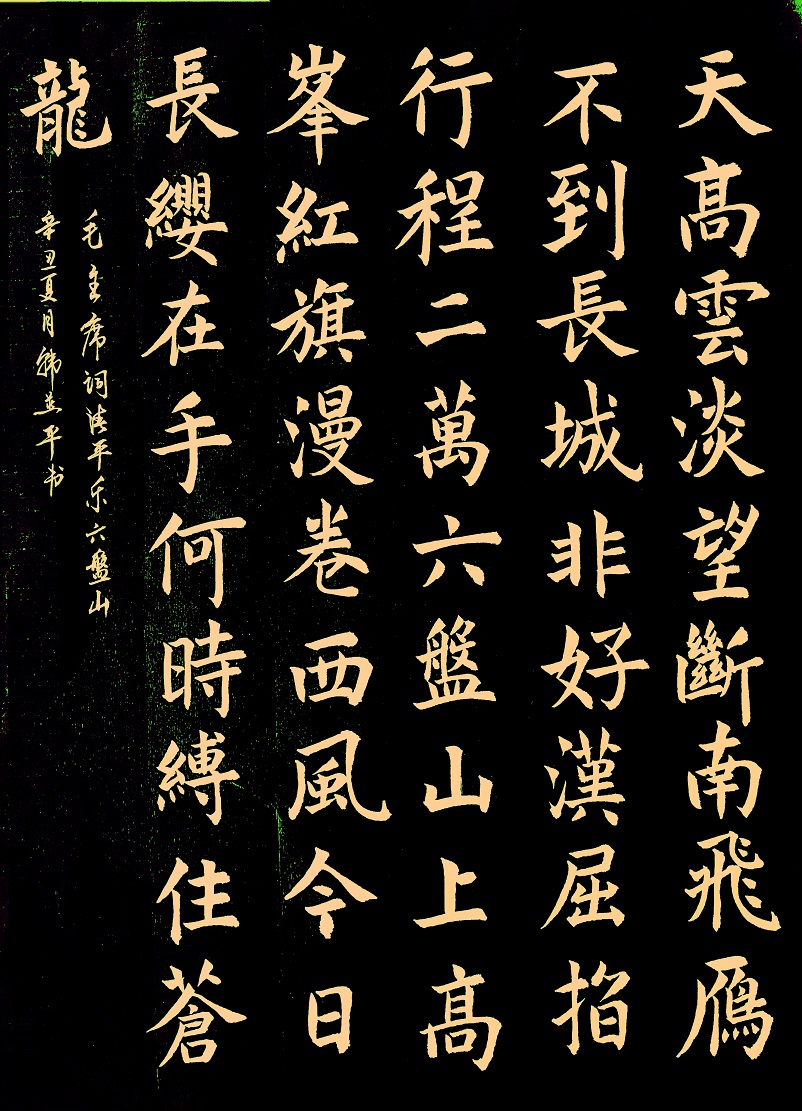 天髙雲淡望斷南飛鴈
不到長城非好漢屈指
行程二萬六盤山上髙
峯紅旗漫卷西風今日
長纓在手何時縛住蒼
龍
毛主席词清平乐六盤山
辛丑夏月韩平书